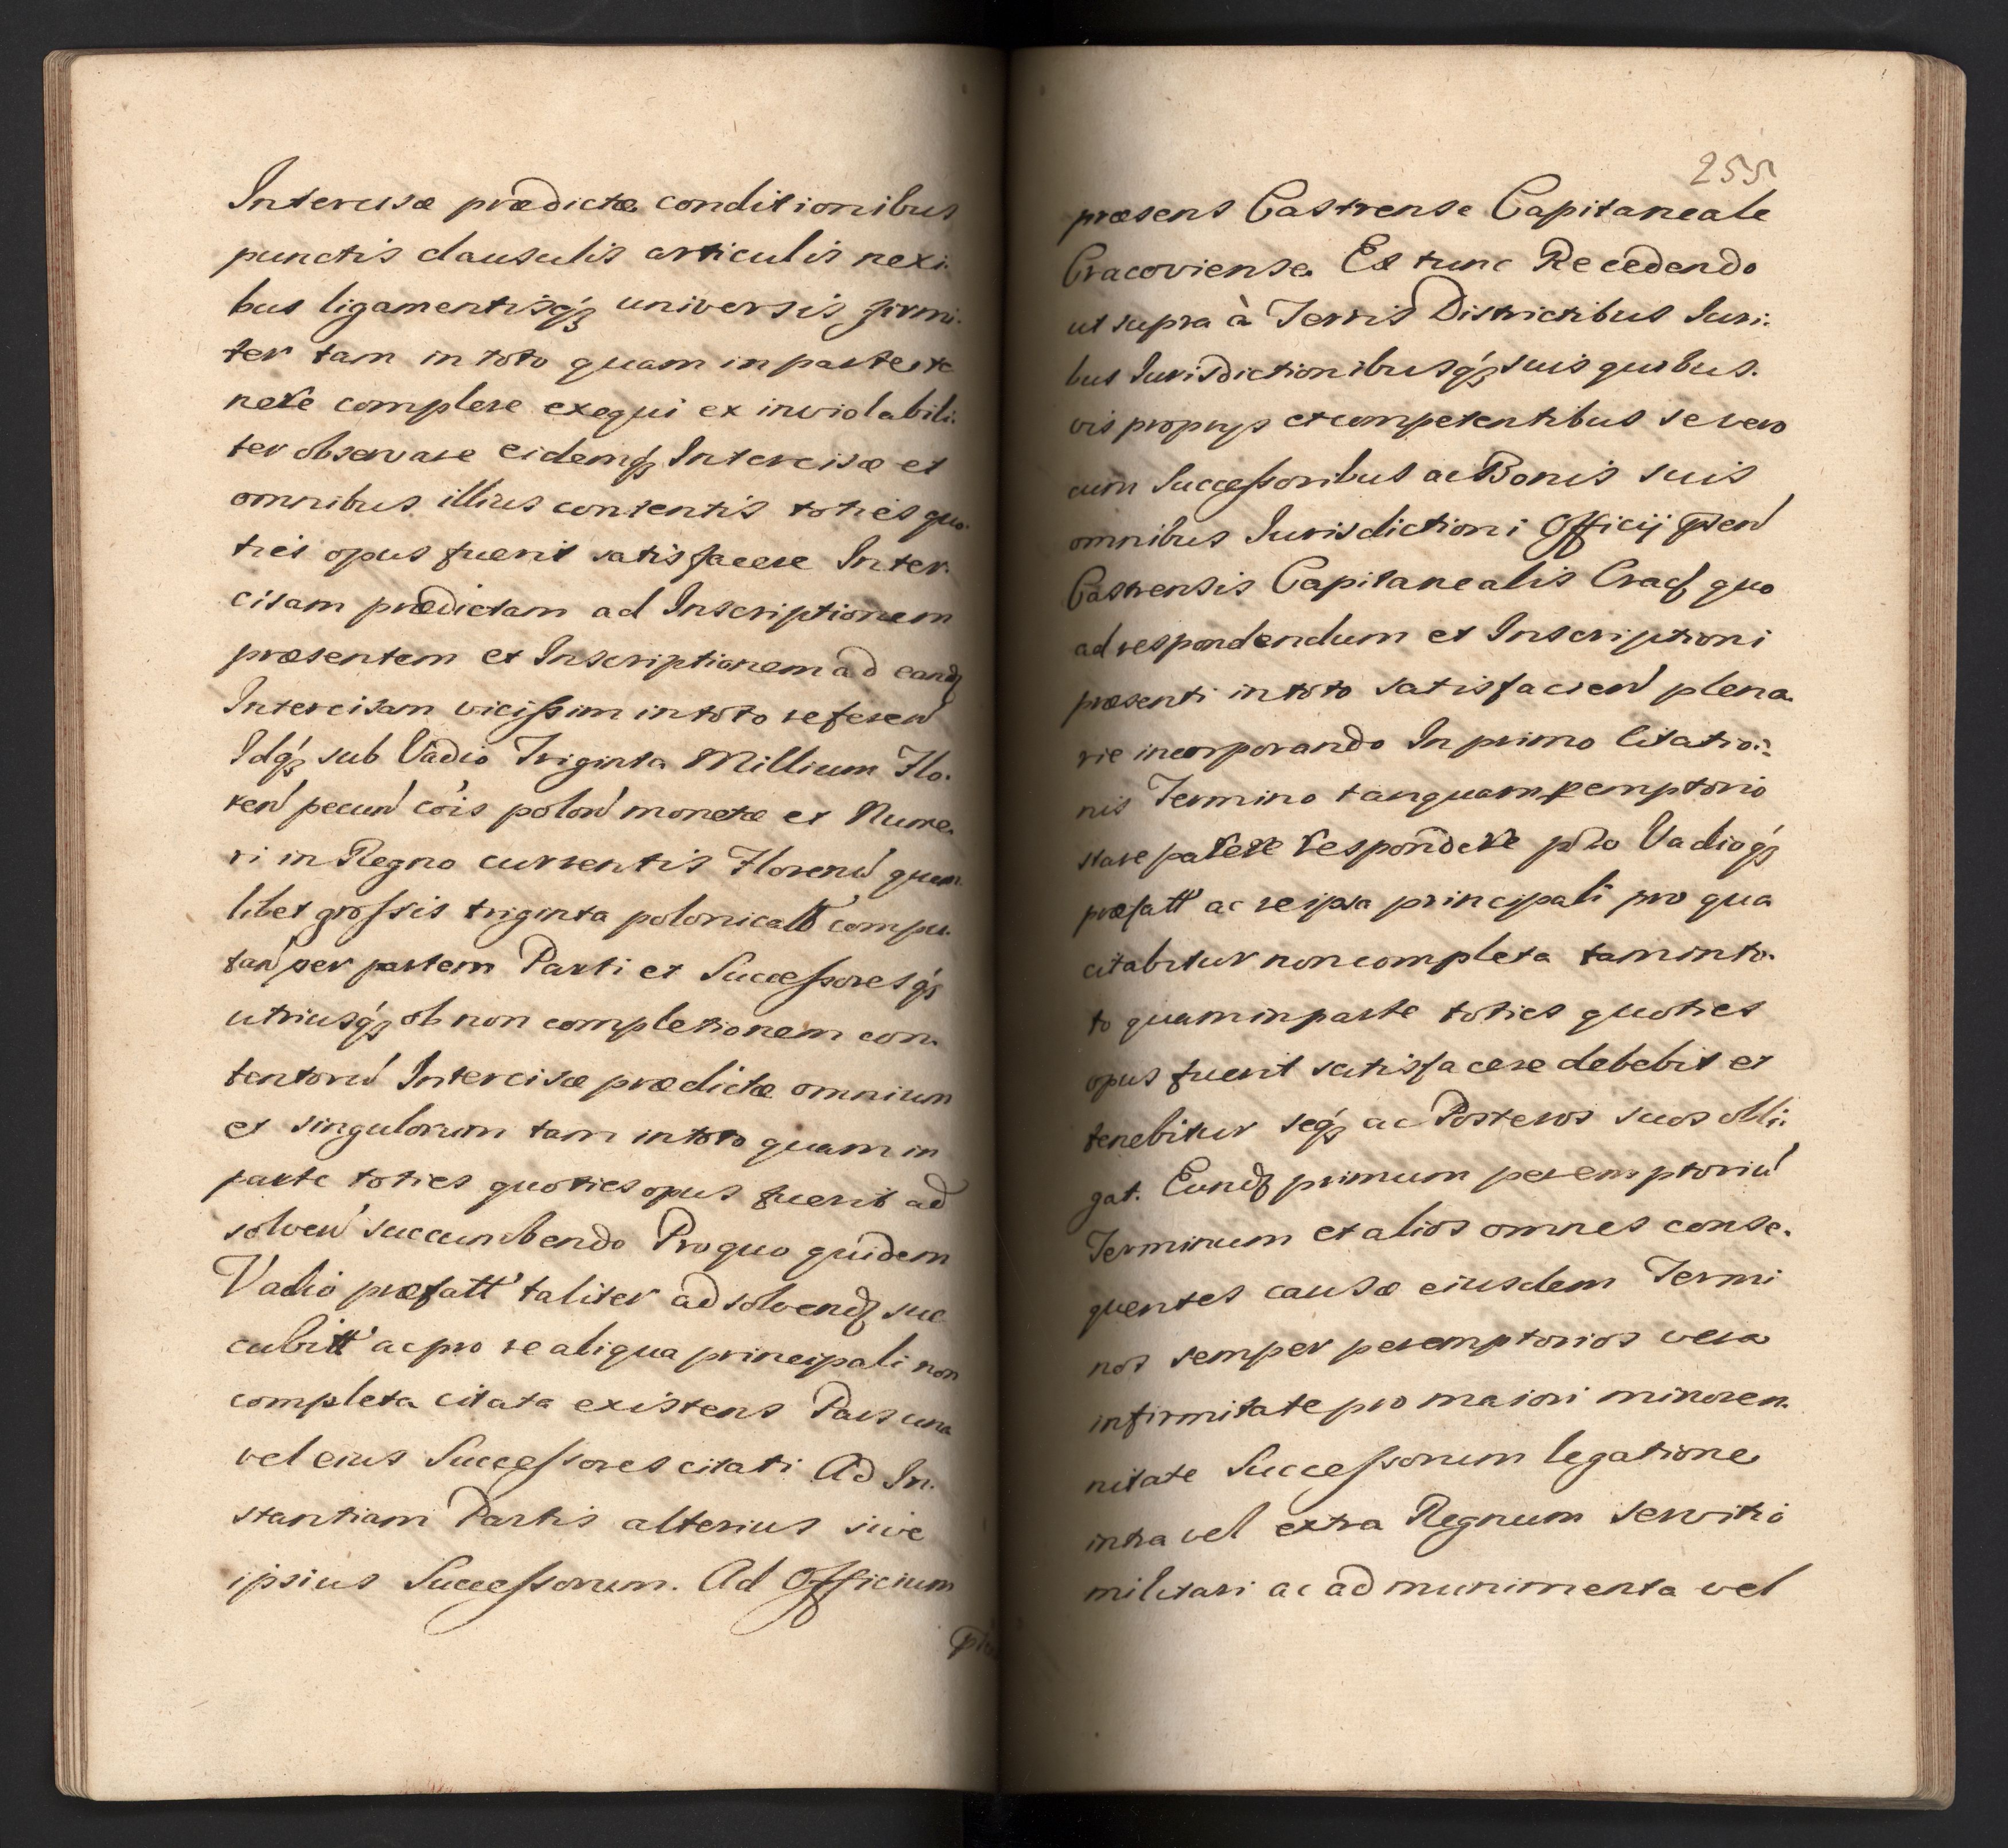 Intercisæ prædictæ conditionibus
punctis clausulis articulis nexi-
bus ligamentisq́ꝫ universis firmi-
ter tam in toto quam in parte te
nere complere exequi ex inviolabili-
ter observare eidemqꝫ Intercisæ et
omnibus illius contentis toties quo-
ties opus fuerit satisfacere Inter-
cisam prædictam ad Inscriptionem
præsentem et Inscriptionem ad eandꝫ
Intercisam vicissim in toto referen̄
Idq́ꝫ sub Vadio Triginta Millium Flo-
ren̄ pecun̄ cois polon̄ monetæ et Nume-
ri in Regno currentis Floren̄ quem-
libet grossis triginta polonicatt compu-
tan̄ per partem Parti et Successoresq́ꝫ
utriusq́ꝫ ob non completionem con-
tentorū Intercisæ prædictæ omnium
et singulorum tam in toto quam in
parte toties quoties opus fuerit ad
solven̄ succumbendo Pro quo quidem
Vadio præfatt taliter ad solvendꝫ suc
cubitt ac pro re aliqua principali non
completa citata existens Pars una
vel eius Successores citati Ad In-
stantiam Partis alterius sive
ipsius Successorum. Ad Officium
255
præsens Castrense Capitaneale
Cracoviense Ex tunc Recedendo
ut supra à Terris Districtibus Iuri-
bus Iurisdictionibusq́ꝫ suis quibus-
vis proprys et competentibus se vero
cum Successoribus ac Bonis suis
omnibus Iurisdictioni Officij p̄sen̄
Castrensis Capitanealis Cracꝫ quo
ad respondendum et Inscriptioni
præsenti in toto satisfacien̄ plena-
rie incorporando In primo Citatio-
nis Termino tanquam peremptorio
stare parere respondere pro Vadioq́ꝫ
præfatt ac re ipsa principali pro qua
citabitur non completa tam in to-
to quam in parte toties quoties
opus fuerit satisfacere debebit et
tenebitur seq́ꝫ ac Posteros suos obli-
gat. Eundꝫ primum peremptoriū
Terminum et alios omnes conse-
quentes causæ eiusdem Termi
nos semper peremptorios vera
infirmitate pro maiori minoren-
nitate Successorum legatione
intra vel extra Regnum servitio
militari ac ad munimenta vel